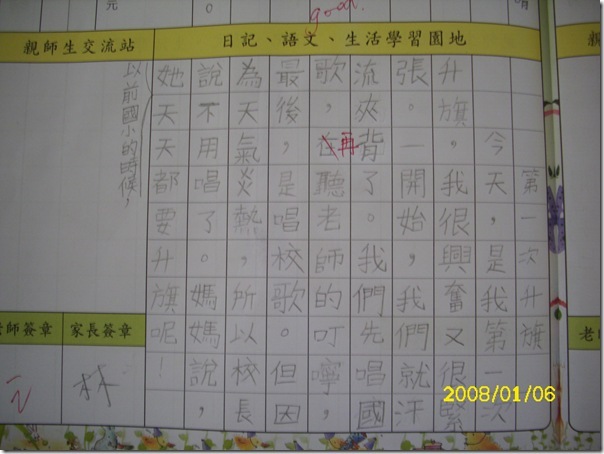 good.
日記、語文、生活學習園地
親師生交流站
第一次升旗
今天，是我第一次
升旗，我很興奮又很緊
張。一開始，我們就汗
流夾背了。我們先唱國
歌，在再聽老師的叮嚀，
最後，是唱校歌。但因
為天氣炎熱，所以校長
說不用唱了。媽媽說，
以前國小的時候，
她天天都要升旗呢！
師簽章
家長簽章
林
2008/01/06